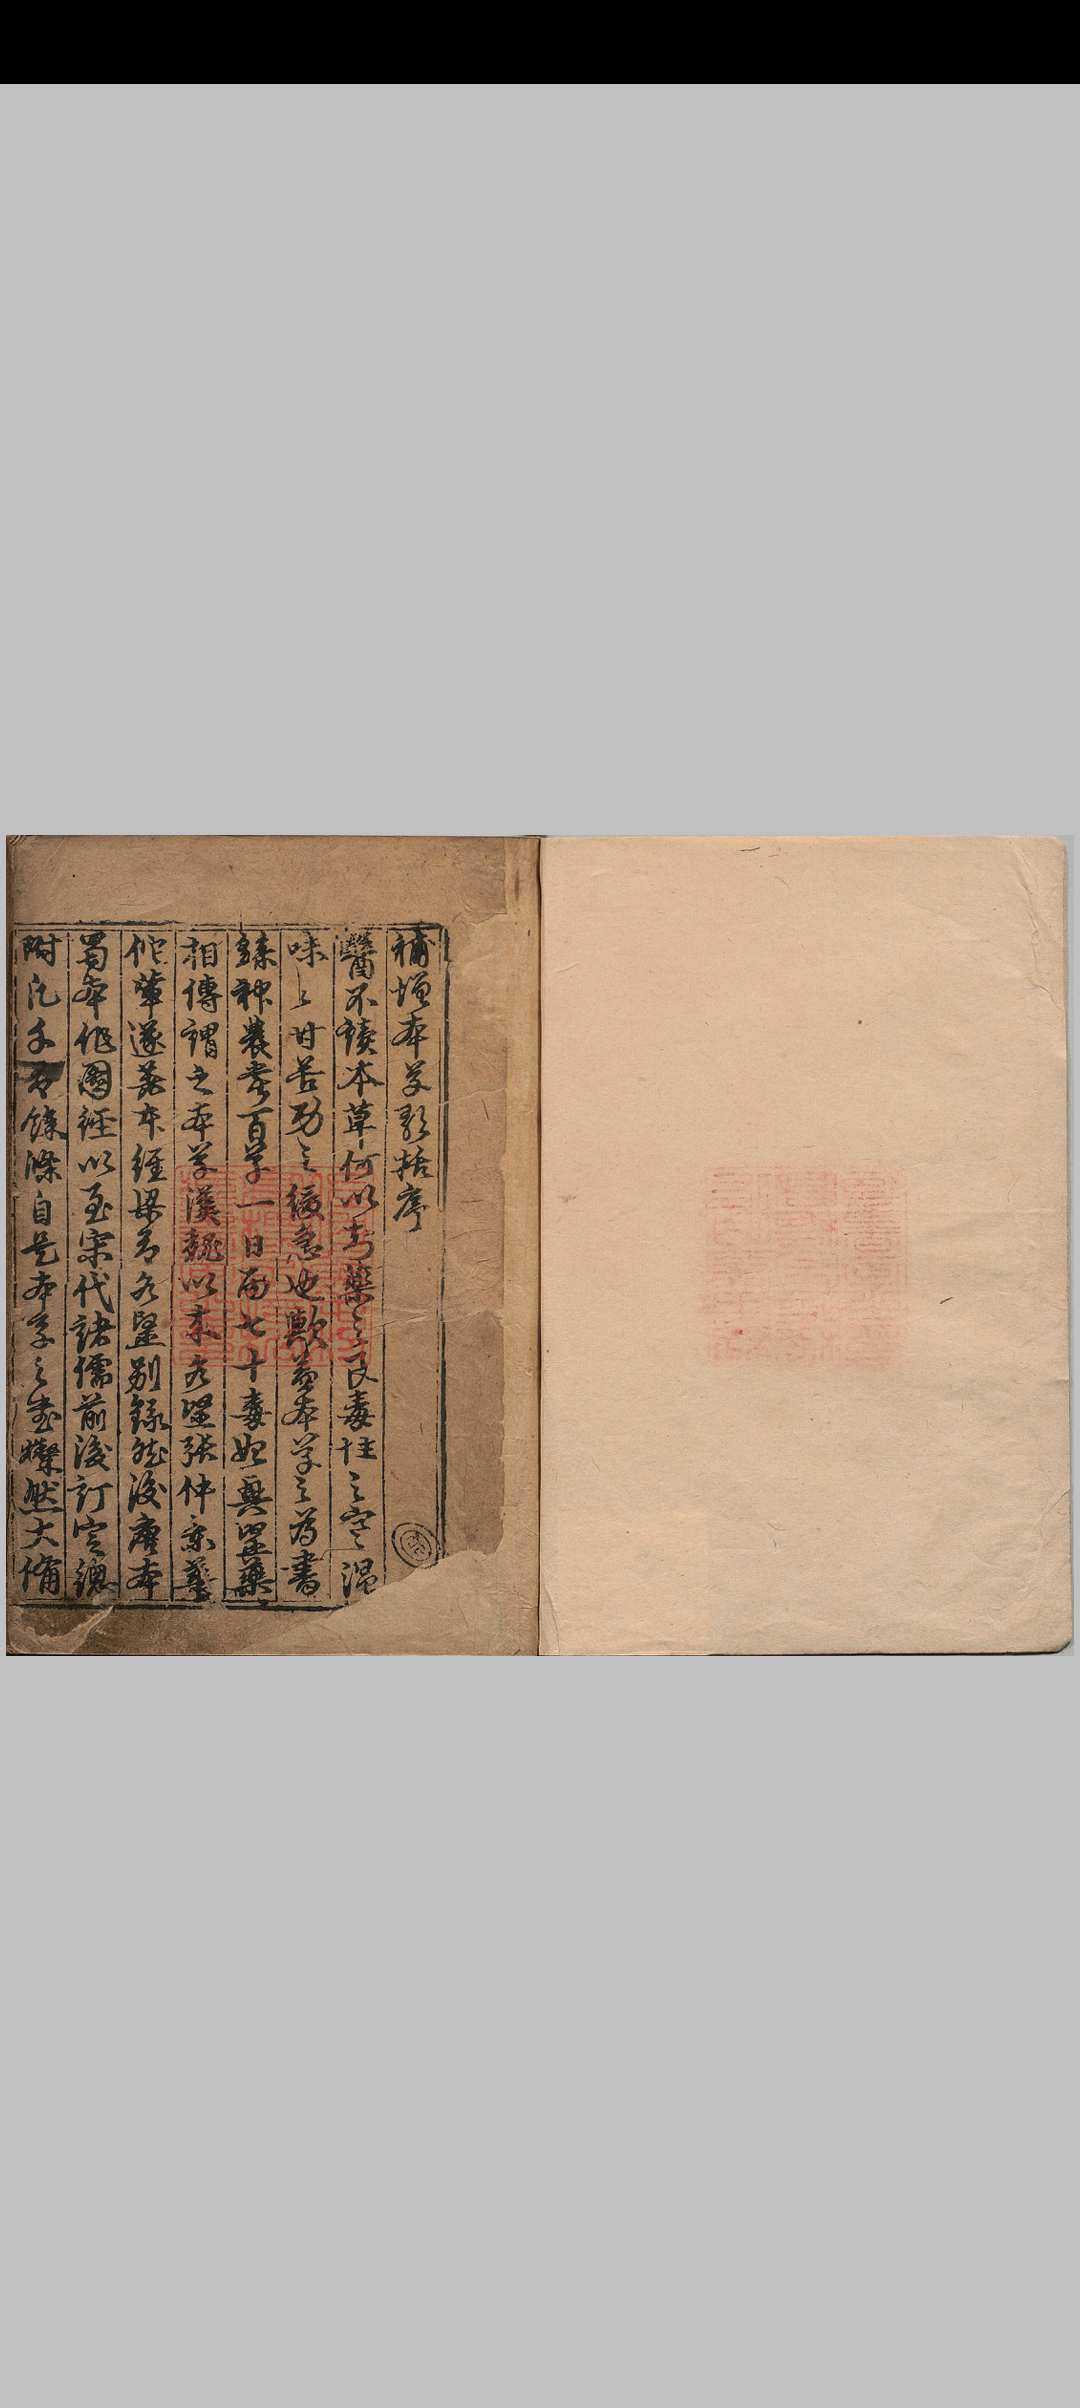 補增本草歌括序
醫不讀本草何以知藥之良毒性之寒溫
味之甘苦功之緩急也歟蓋本草之為書
神農嘗百草一日而七十毒始興醫藥
相傳謂之本草漢魏以來名醫張仲景華
佗輩遂葺本經梁有名醫別錄然後唐本
蜀本作圖經以至宋代諸儒前後訂定總
附凡千百餘條自是本草之書燦然大備